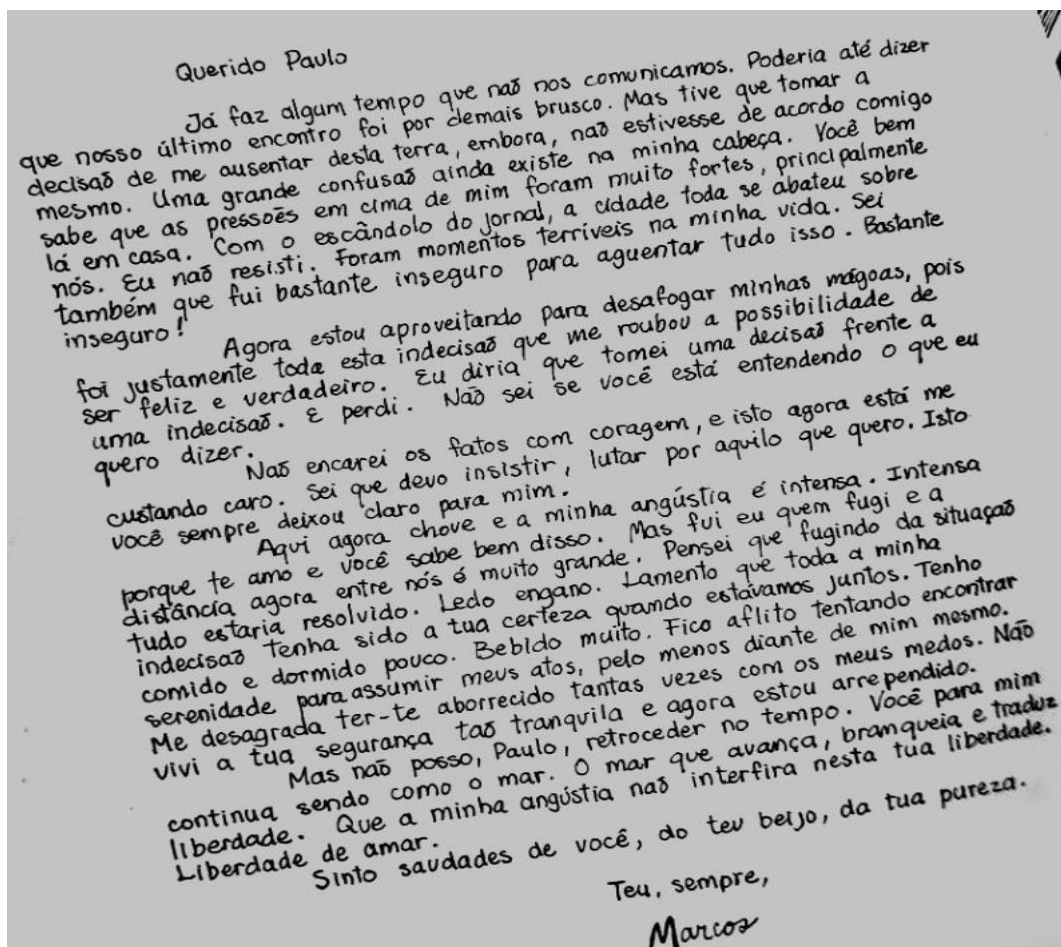 Querido Paulo
Já faz algum tempo que não nos comunicamos. Poderia até dizer
que nosso último encontro foi por demais brusco. Mas tive que tomar a
decisão de me ausentar desta terra, embora, não estivesse de acordo comigo
mesmo. Uma grande confusão ainda existe na minha cabeça. Você bem
sabe que as pressões em cima de mim foram muito fortes, principalmente
lá em casa. Com o escândolo do jornal, a cidade toda se abateu sobre
nós. Eu não resisti. Foram momentos terríveis na minha vida. Sei
também que fui bastante inseguro para aguentar tudo isso. Bastante
inseguro!
Agora estou aproveitando para desafogar minhas mágoas, pois
foi justamente toda esta indecisão que me roubou a possibilidade de
ser feliz e verdadeiro. Eu diria que tomei uma decisão frente a
uma indecisão. E perdi. Não sei se você está entendendo o que eu
quero dizer.
Não encarei os fatos com coragem, e isto agora está me
custando caro. Sei que devo insistir, lutar por aquilo que quero. Isto
você sempre deixou claro para mim.
Aqui agora chove e a minha angústia é intensa. Intensa
porque te amo e você sabe bem disso. Mas fui eu quem fugi e a
distância agora entre nós é muito grande. Pensei que fugindo da situação
tudo estaria resolvido. Ledo engano. Lamento que toda a minha
indecisão tenha sido a tua certeza quando estávamos juntos. Tenho
comido e dormido pouco. Bebido muito. Fico aflito tentando encontrar
serenidade para assumir meus atos, pelo menos diante de mim mesmo.
Me desagrada ter-te aborrecido tantas vezes com os meus medos. Não
vivi a tua segurança tão tranquila e agora estou arrependido.
Mas não posso, Paulo, retroceder no tempo. Você para mim
continua sendo como o mar. O mar que avança, branqueia e traduz
liberdade. Que a minha angústia não interfira nesta tua liberdade.
Liberdade de amar.
Sinto saudades de você, do teu beijo, da tua pureza.
Teu, sempre,
Marcos